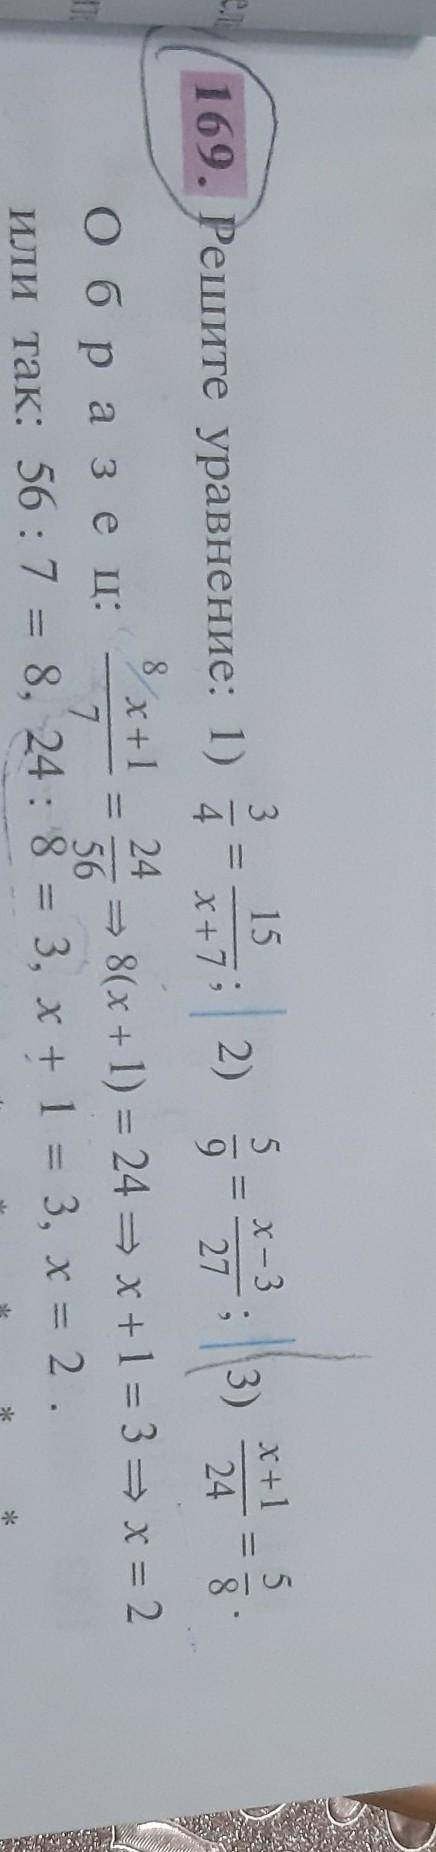 169. Решите уравнение: 1) 3/4 = 15/(x+7); 2) 5/9 = (x−3)/27; 3) (x+1)/24 = 5/8.
О б р а з е ц: ⁸/ (x+1)/7 = 24/56 ⇒ 8(x + 1) = 24 ⇒ x + 1 = 3 ⇒ x = 2
или так: 56 : 7 = 8, 24 : 8 = 3, x + 1 = 3, x = 2 .
* * * *